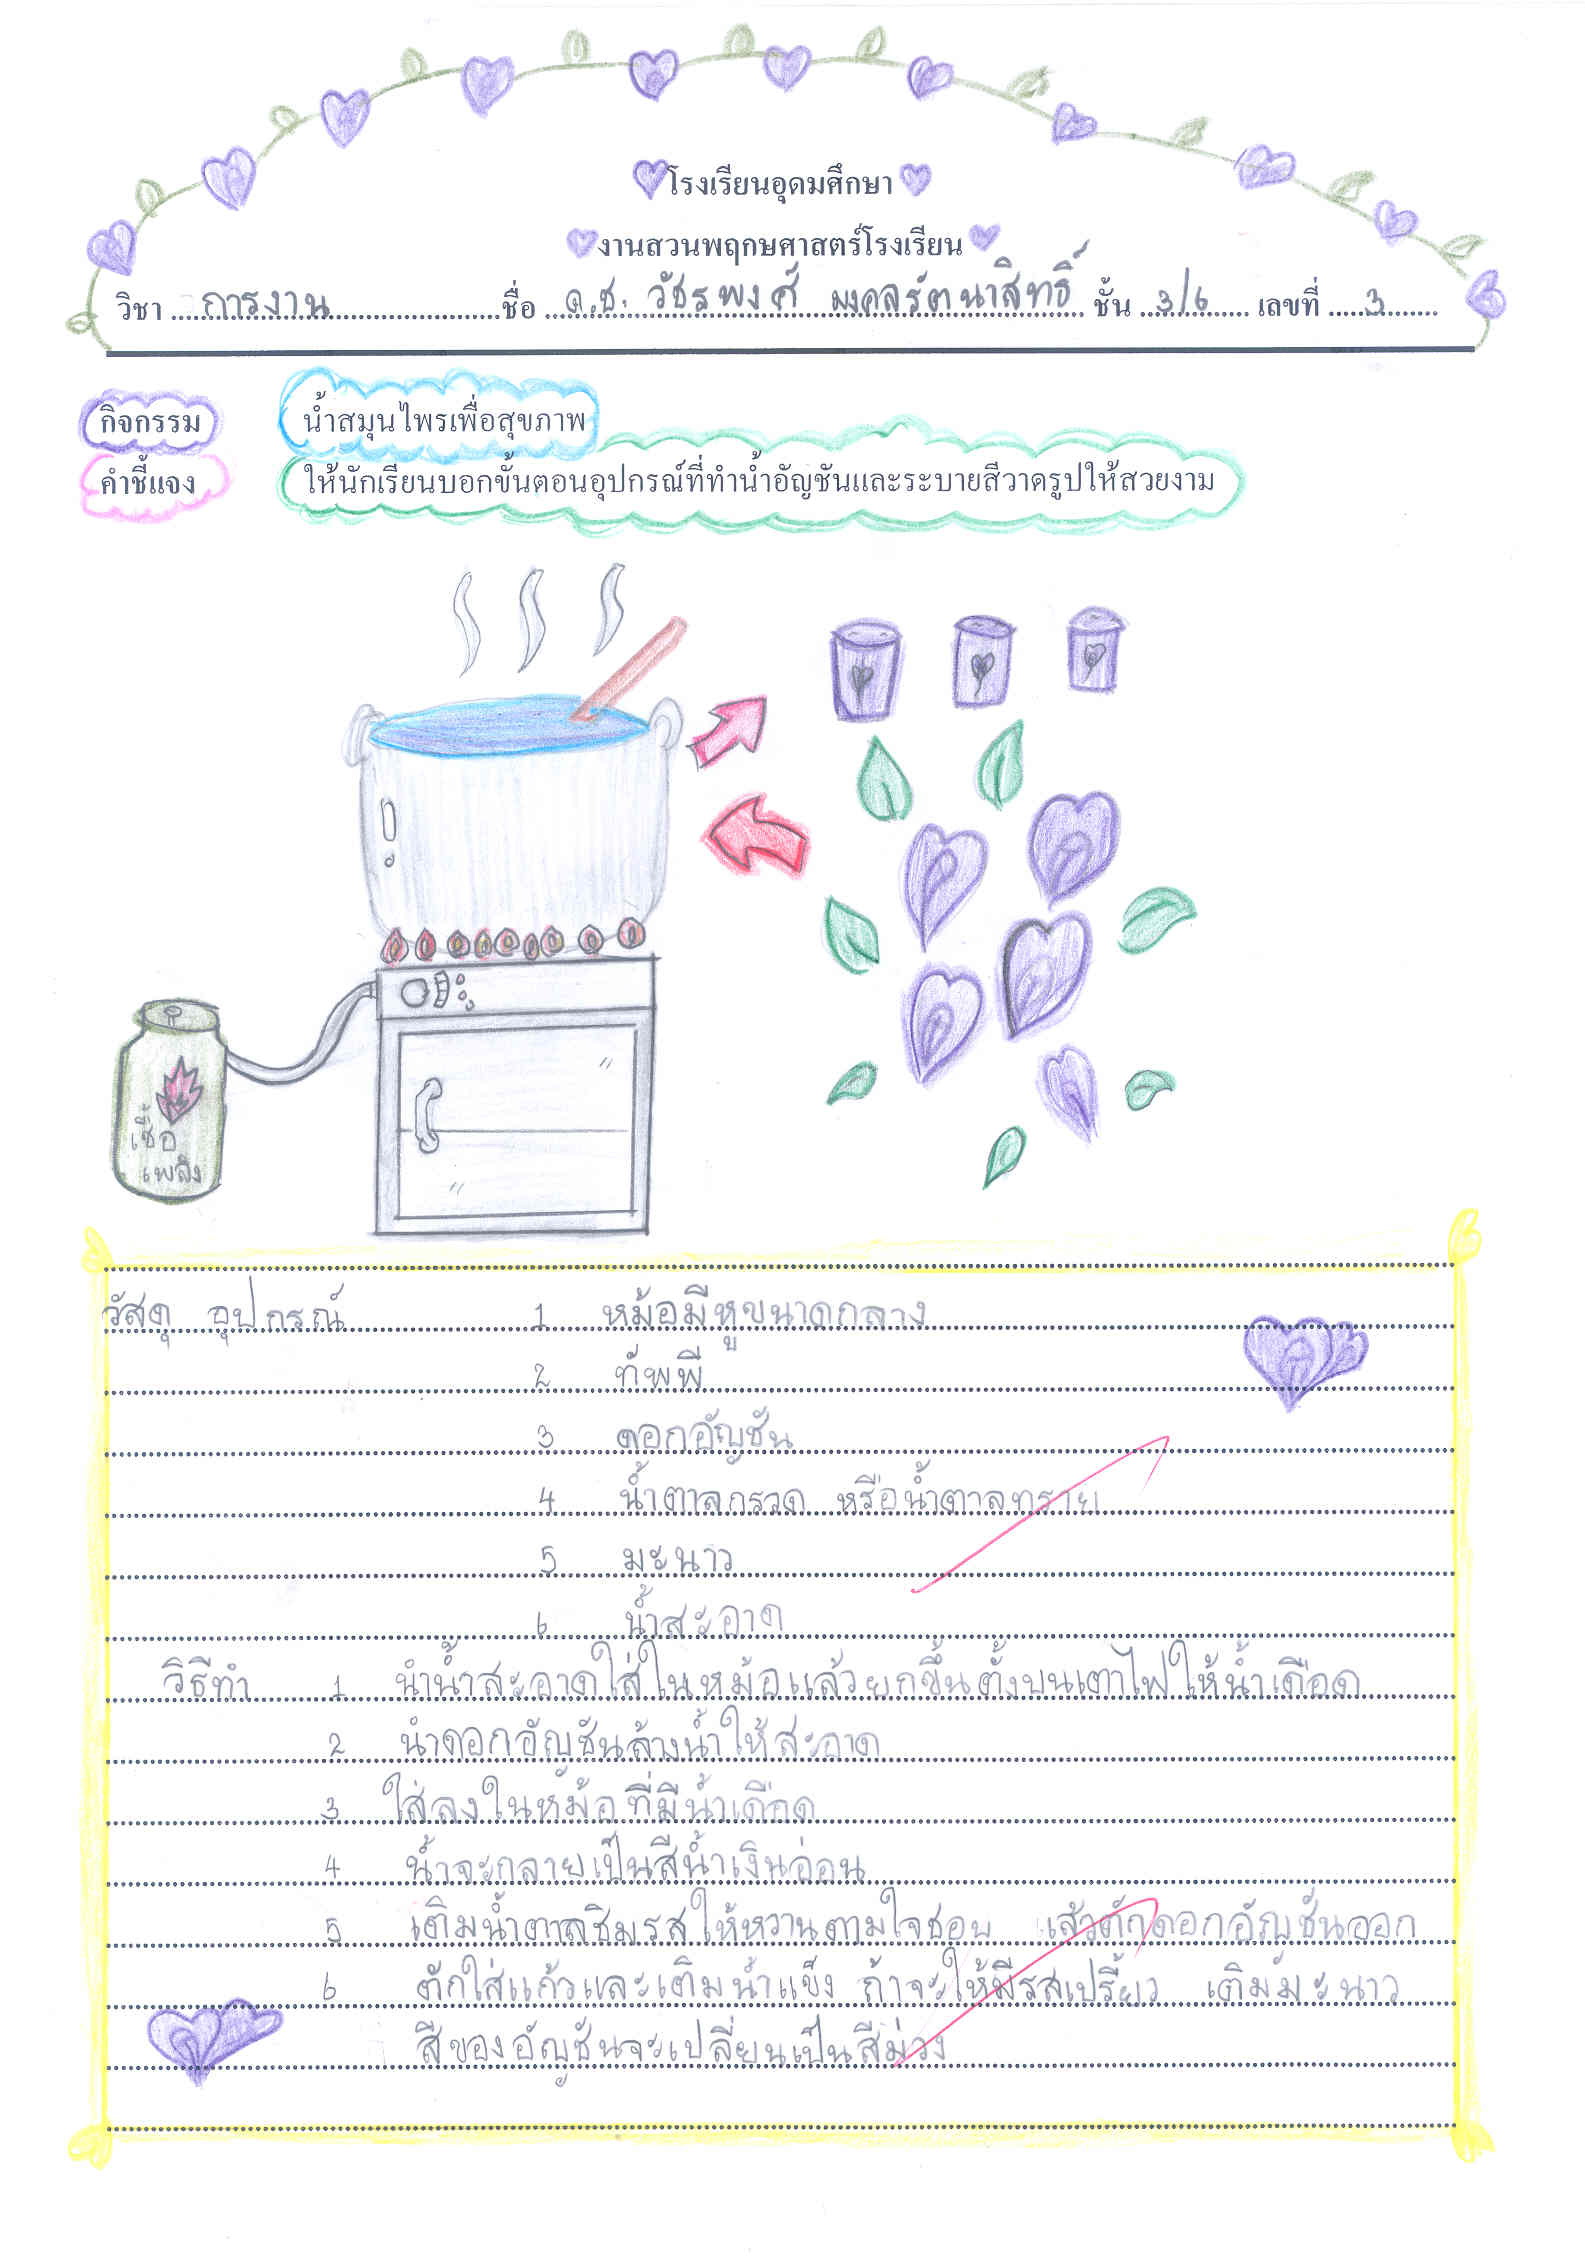 โรงเรียนอุดมศึกษา
งานสวนพฤกษศาสตร์โรงเรียน
วิชา การงาน ชื่อ ด.ช. วัชรพงศ์ มงคลรัตนาสิทธิ์ ชั้น 3/6 เลขที่ 3
กิจกรรม น้ำสมุนไพรเพื่อสุขภาพ
คำชี้แจง ให้นักเรียนบอกขั้นตอนอุปกรณ์ที่ทำน้ำอัญชันและระบายสีวาดรูปให้สวยงาม
เชื้อ
เพลิง
วัสดุ อุปกรณ์ 1 หม้อมีหูขนาดกลาง
2 ทัพพี
3 ดอกอัญชัน
4 น้ำตาลกรวด หรือน้ำตาลทราย
5 มะนาว
6 น้ำสะอาด
วิธีทำ 1 นำน้ำสะอาดใส่ในหม้อแล้วยกขึ้นตั้งบนเตาไฟให้น้ำเดือด
2 นำดอกอัญชันล้างน้ำให้สะอาด
3 ใส่ลงในหม้อที่มีน้ำเดือด
4 น้ำจะกลายเป็นสีน้ำเงินอ่อน
5 เติมน้ำตาลชิมรสให้หวานตามใจชอบ แล้วตักดอกอัญชันออก
6 ตักใส่แก้วและเติมน้ำแข็ง ถ้าจะให้มีรสเปรี้ยว เติมมะนาว
สีของอัญชันจะเปลี่ยนเป็นสีม่วง